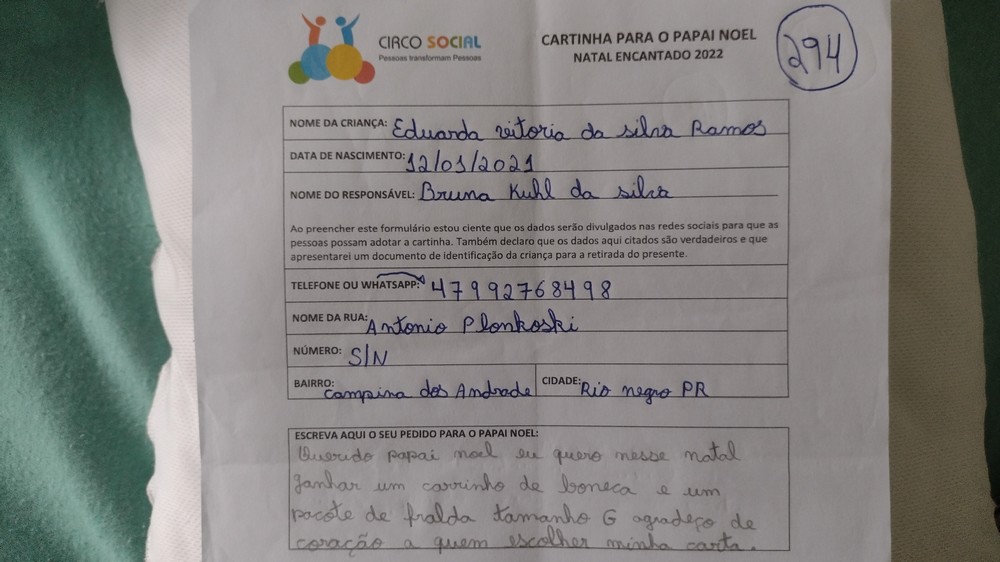 CIRCO SOCIAL
Pessoas transformam Pessoas
CARTINHA PARA O PAPAI NOEL
NATAL ENCANTADO 2022
294
NOME DA CRIANÇA: Eduarda vitoria da silva Ramos
DATA DE NASCIMENTO: 12/01/2021
NOME DO RESPONSÁVEL: Bruna Kuhl da silva
Ao preencher este formulário estou ciente que os dados serão divulgados nas redes sociais para que as
pessoas possam adotar a cartinha. Também declaro que os dados aqui citados são verdadeiros e que
apresentarei um documento de identificação da criança para a retirada do presente.
TELEFONE OU WHATSAPP: 47992768498
NOME DA RUA: Antonio Plonkoski
NÚMERO: S/N
BAIRRO: Campina dos Andrade CIDADE: Rio negro PR
ESCREVA AQUI O SEU PEDIDO PARA O PAPAI NOEL:
Querido papai noel eu quero nesse natal
ganhar um carrinho de boneca e um
pacote de fralda tamanho G agradeço de
coração a quem escolher minha carta.